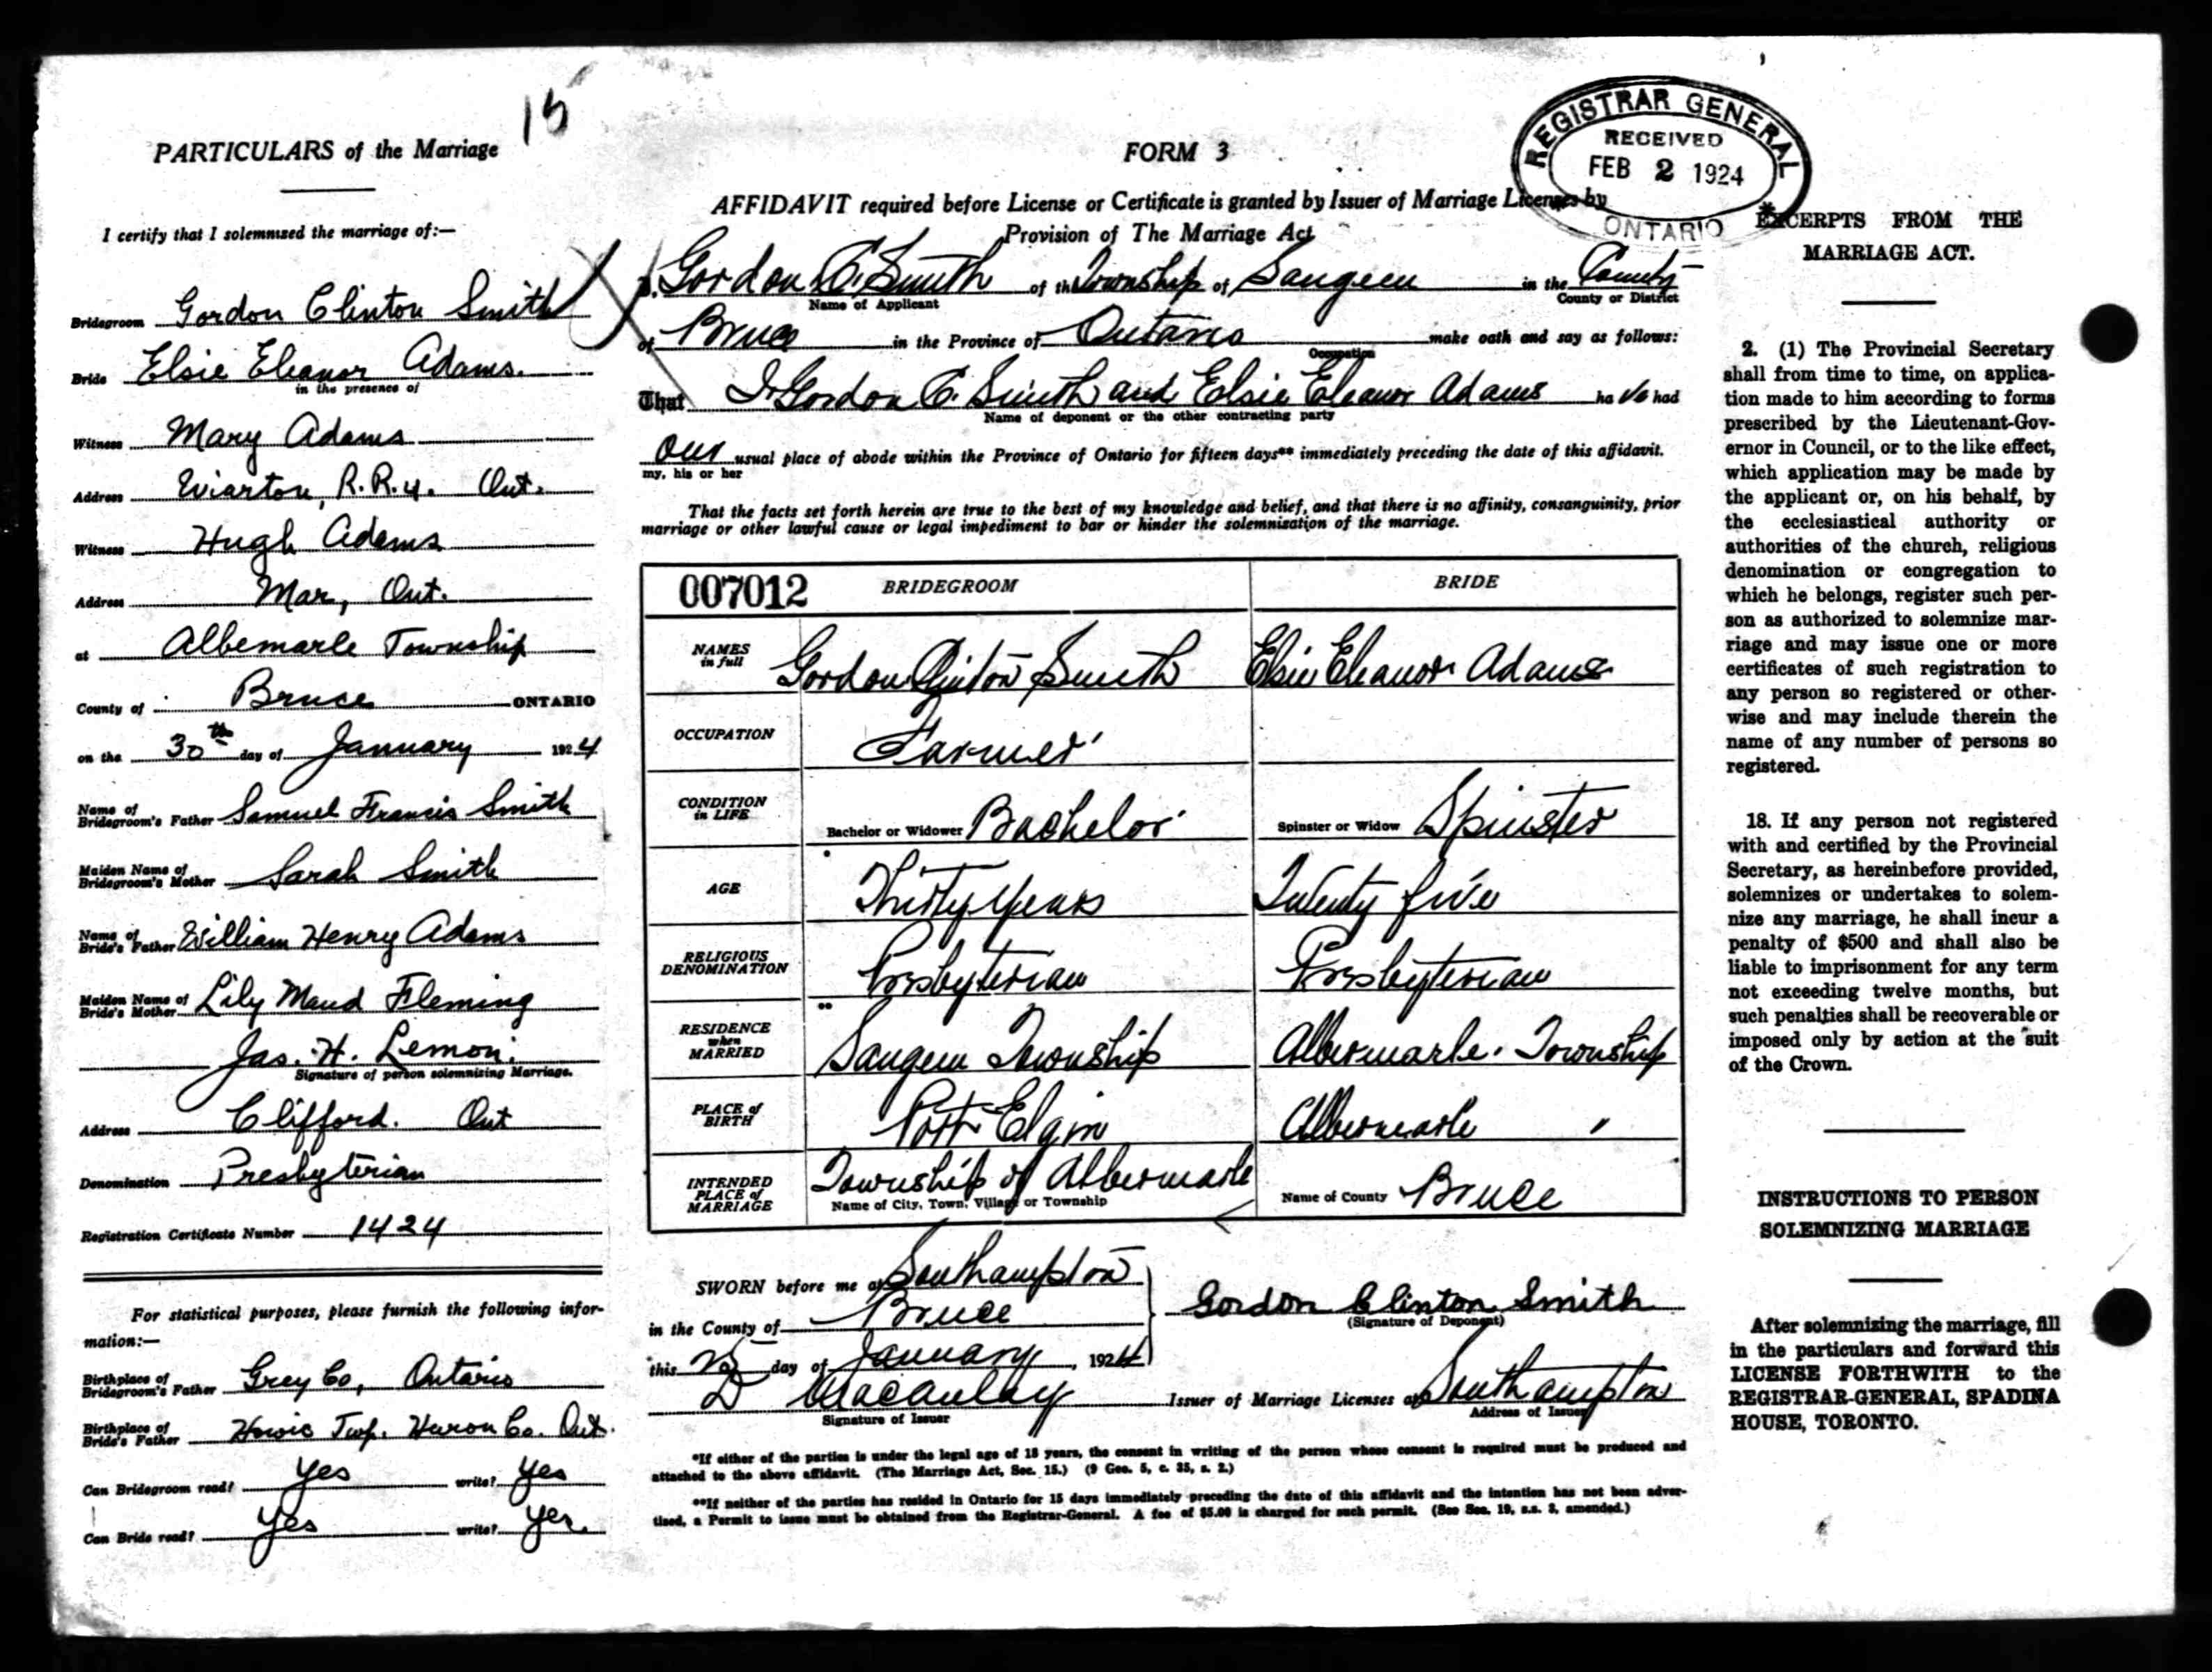 15
PARTICULARS of the Marriage
I certify that I solemnized the marriage of:—
Bridegroom Gordon Clinton Smith
Bride Elsie Eleanor Adams.
in the presence of
Witness Mary Adams
Address Wiarton, R.R.4. Ont.
Witness Hugh Adams
Address Mar, Ont.
at Albemarle Township
County of Bruce ONTARIO
on the 30th day of January 1924
Name of
Bridegroom's Father Samuel Francis Smith
Maiden Name of
Bridegroom's Mother Sarah Smith
Name of
Bride's Father William Henry Adams
Maiden Name of
Bride's Mother Lily Maud Fleming
Jas. H. Lemon.
Signature of person solemnizing Marriage.
Address Clifford. Ont
Denomination Presbyterian
Registration Certificate Number 1424
For statistical purposes, please furnish the following infor-
mation:—
Birthplace of
Bridegroom's Father Grey Co, Ontario
Birthplace of
Bride's Father Howic Twp. Huron Co. Ont.
Can Bridegroom read? Yes write? Yes
Can Bride read? Yes write? Yes.
FORM 3
REGISTRAR GENERAL
RECEIVED
FEB 2 1924
ONTARIO
AFFIDAVIT required before License or Certificate is granted by Issuer of Marriage Licenses by
Provision of The Marriage Act
I, Gordon C. Smith of the Township of Saugeen in the County
Name of Applicant County or District
of Bruce in the Province of Ontario make oath and say as follows:
Occupation
That I Gordon C. Smith and Elsie Eleanor Adams ha ve had
Name of deponent or the other contracting party
our usual place of abode within the Province of Ontario for fifteen days** immediately preceding the date of this affidavit.
my, his or her
That the facts set forth herein are true to the best of my knowledge and belief, and that there is no affinity, consanguinity, prior
marriage or other lawful cause or legal impediment to bar or hinder the solemnisation of the marriage.
007012 BRIDEGROOM BRIDE
NAMES in full Gordon Clinton Smith Elsie Eleanor Adams
OCCUPATION Farmer
CONDITION in LIFE Bachelor or Widower Bachelor Spinster or Widow Spinster
AGE Thirty Years Twenty five
RELIGIOUS DENOMINATION Presbyterian Presbyterian
RESIDENCE when MARRIED Saugeen Township Albermarle. Township
PLACE of BIRTH Port Elgin Albermarle "
INTENDED PLACE of MARRIAGE Township of Albermarle Name of County Bruce
Name of City, Town, Village or Township
SWORN before me at Southampton
in the County of Bruce
Gordon Clinton Smith
(Signature of Deponent)
this 25 day of January, 1924
D Macaulay Issuer of Marriage Licenses at Southampton
Signature of Issuer Address of Issuer
*If either of the parties is under the legal age of 18 years, the consent in writing of the person whose consent is required must be produced and
attached to the above affidavit. (The Marriage Act, Sec. 15.) (9 Geo. 5, c. 35, s. 2.)
**If neither of the parties has resided in Ontario for 15 days immediately preceding the date of this affidavit and the intention has not been adver-
tised, a Permit to issue must be obtained from the Registrar-General. A fee of $5.00 is charged for such permit. (See Sec. 19, s.s. 3, amended.)
EXCERPTS FROM THE
MARRIAGE ACT.
2. (1) The Provincial Secretary
shall from time to time, on applica-
tion made to him according to forms
prescribed by the Lieutenant-Gov-
ernor in Council, or to the like effect,
which application may be made by
the applicant or, on his behalf, by
the ecclesiastical authority or
authorities of the church, religious
denomination or congregation to
which he belongs, register such per-
son as authorized to solemnize mar-
riage and may issue one or more
certificates of such registration to
any person so registered or other-
wise and may include therein the
name of any number of persons so
registered.
18. If any person not registered
with and certified by the Provincial
Secretary, as hereinbefore provided,
solemnizes or undertakes to solem-
nize any marriage, he shall incur a
penalty of $500 and shall also be
liable to imprisonment for any term
not exceeding twelve months, but
such penalties shall be recoverable or
imposed only by action at the suit
of the Crown.
INSTRUCTIONS TO PERSON
SOLEMNIZING MARRIAGE
After solemnizing the marriage, fill
in the particulars and forward this
LICENSE FORTHWITH to the
REGISTRAR-GENERAL, SPADINA
HOUSE, TORONTO.